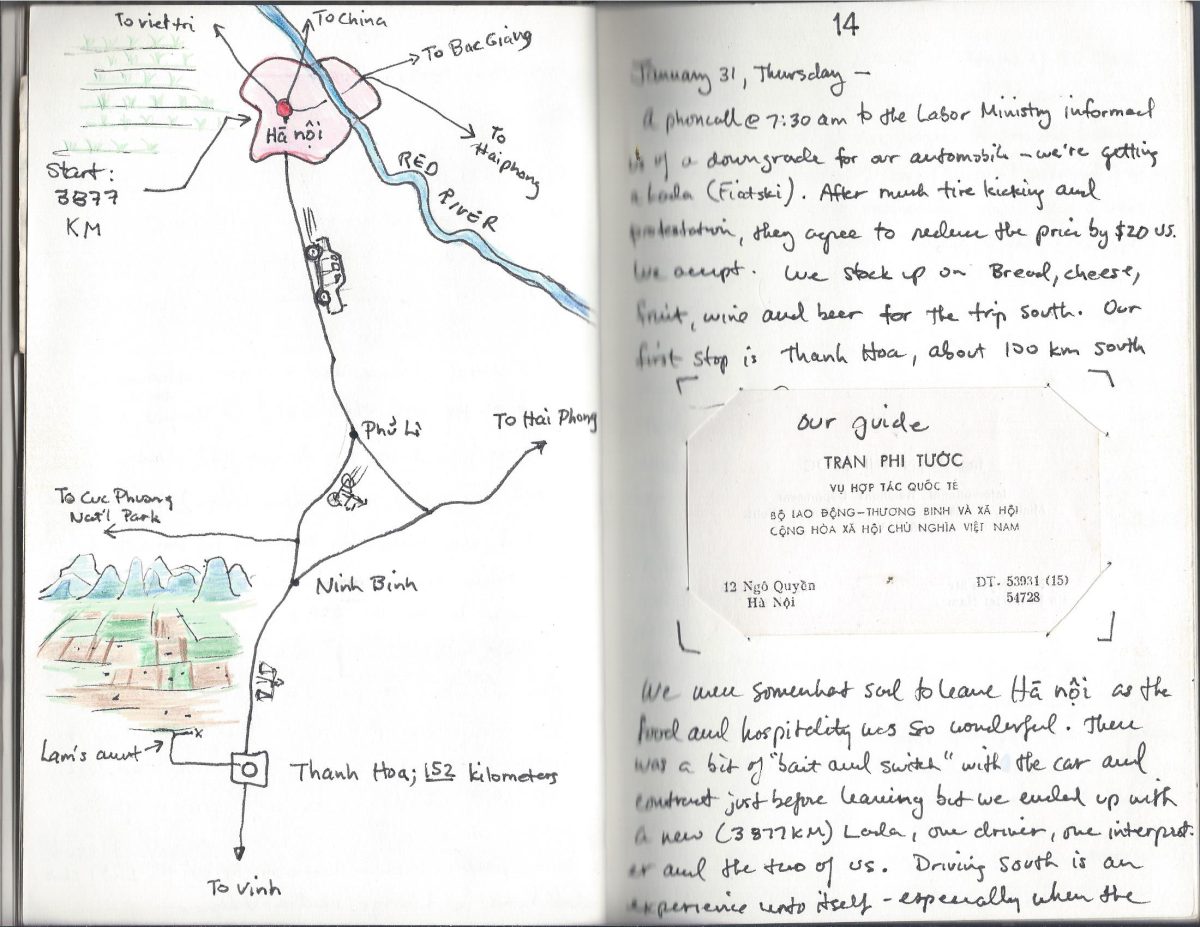 To viet tri
To China
To Bac Giang
Hā nội
To
Haiphong
Start:
3877
KM
RED RIVER
Phủ Lì
To Hai Phong
To Cuc Phuong
Nat'l Park
Ninh Binh
Lam's aunt
x
Thanh Hoa; 152 kilometers
To Vinh
14
January 31, Thursday —
A phoncall @ 7:30 am to the Labor Ministry informed
us of a downgrade for our automobile – we're getting
a Lada (Fiatski). After much tire kicking and
protestation, they agree to reduce the price by $20 US.
We accept. We stock up on Bread, cheese,
fruit, wine and beer for the trip south. Our
first stop is Thanh Hoa, about 100 km south
our guide
TRAN PHI TƯỚC
VỤ HỢP TÁC QUỐC TẾ
BỘ LAO ĐỘNG-THƯƠNG BINH VÀ XÃ HỘI
CỘNG HÒA XÃ HỘI CHỦ NGHĨA VIỆT NAM
12 Ngô Quyền
Hà Nội
ĐT. 53931 (15)
54728
We were somewhat sad to leave Hā nội as the
food and hospitality was so wonderful. There
was a bit of "bait and switch" with the car and
contract just before leaving but we ended up with
a new (3877KM) Lada, one driver, one interpret-
er and the two of us. Driving south is an
experience unto itself – especially when the